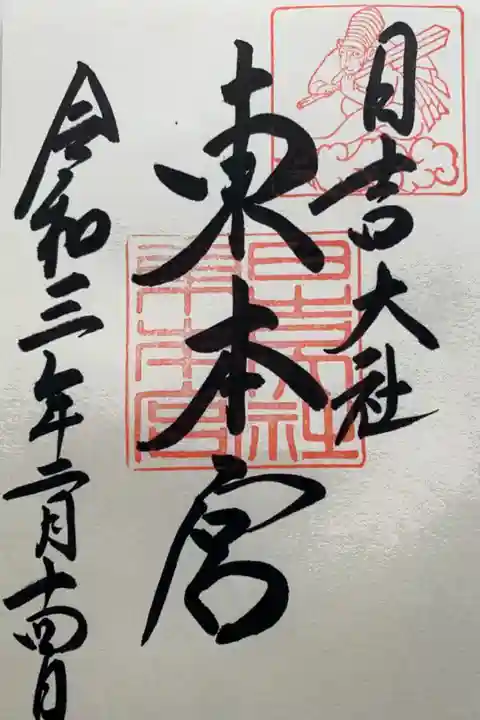 日吉大社
東本宮
令和三年二月十四日
日吉大社
東本宮